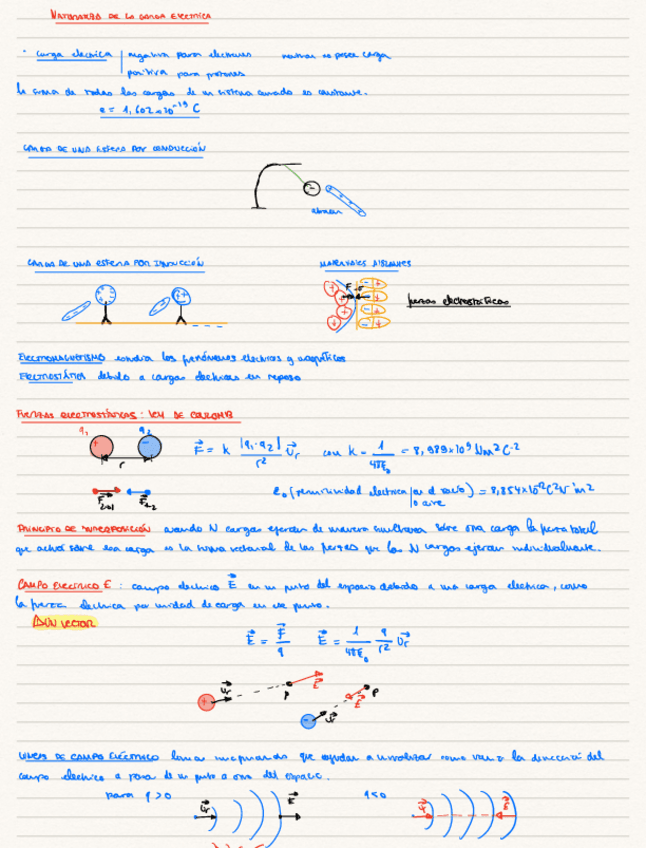 NATURALEZA DE LA CARGA ELECTRICA
· carga electrica | negativa para electrones neutrones no posee carga
positiva para protones
la suma de todas las cargas de un sistema cerrado es constante.
e = 1,602 × 10⁻¹⁹ C
CARGA DE UNA ESFERA POR CONDUCCIÓN
CARGA DE UNA ESFERA POR INDUCCIÓN MATERIALES AISLANTES
fuerzas electrostáticas
ELECTROMAGNETISMO estudia los fenómenos eléctricos y magnéticos
ELECTROSTÁTICA debido a cargas electricas en reposo
FUERZAS ELECTROSTÁTICAS: LEY DE COULOMB
q₁ q₂
F = k |q₁·q₂| / r² u_r con k = 1 / 4πε₀ = 8,989×10⁹ Nm²C⁻²
r
ε₀ (permitividad electrica | en el vacío) = 8,854×10⁻¹²C²N⁻¹m⁻²
o aire
PRINCIPIO DE SUPERPOSICIÓN cuando N cargas ejercen de manera simultanea sobre otra carga la fuerza total
que actúa sobre esa carga es la suma vectorial de las fuerzas que las N cargas ejercen individualmente.
CAMPO ELECTRICO E: campo electrico E en un punto del espacio debido a una carga electrica, como
la fuerza electrica por unidad de carga en ese punto.
UN VECTOR
E = F / q E = 1 / 4πε₀ q / r² u_r
u_r P E
P E
u_r
LINEAS DE CAMPO ELÉCTRICO lineas imaginarias que ayudan a visualizar como varia la dirección del
campo electrico a pasar de un punto a otro del espacio.
para q > 0 q < 0